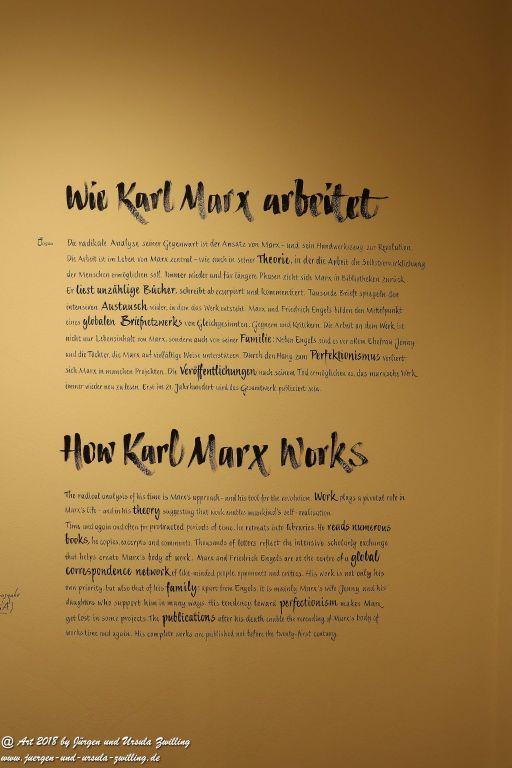 Wie Karl Marx arbeitet
Die radikale Analyse seiner Gegenwart ist der Ansatz von Marx – und sein Handwerkszeug zur Revolution.
Die Arbeit ist im Leben von Marx zentral – wie auch in seiner Theorie, in der die Arbeit die Selbstverwirklichung
der Menschen ermöglichen soll. Immer wieder und für längere Phasen zieht sich Marx in Bibliotheken zurück.
Er liest unzählige Bücher, schreibt ab, exzerpiert und kommentiert. Tausende Briefe spiegeln den
intensiven Austausch wider, in dem das Werk entsteht. Marx und Friedrich Engels bilden den Mittelpunkt
eines globalen Briefnetzwerks von Gleichgesinnten, Gegnern und Kritikern. Die Arbeit an dem Werk ist
nicht nur Lebensinhalt von Marx, sondern auch von seiner Familie: Neben Engels sind es vor allem Ehefrau Jenny
und die Töchter, die Marx auf vielfältige Weise unterstützen. Durch den Hang zum Perfektionismus verliert
sich Marx in manchen Projekten. Die Veröffentlichungen nach seinem Tod ermöglichen es, das marxsche Werk
immer wieder neu zu lesen. Erst im 21. Jahrhundert wird das Gesamtwerk publiziert sein.
How Karl Marx Works
The radical analysis of his time is Marx's approach – and his tool for the revolution. Work plays a pivotal role in
Marx's life – and in his theory suggesting that work enables mankind's self-realisation.
Time and again and often for protracted periods of time, he retreats into libraries. He reads numerous
books, he copies, excerpts and comments. Thousands of letters reflect the intensive scholarly exchange
that helps create Marx's body of work. Marx and Friedrich Engels are at the centre of a global
correspondence network of like-minded people, opponents and critics. His work is not only his
own priority, but also that of his family: apart from Engels, it is mainly Marx's wife Jenny and his
daughters who support him in many ways. His tendency toward perfectionism makes Marx
get lost in some projects. The publications after his death enable the rereading of Marx's body of
works time and again. His complete works are published not before the twenty-first century.
@ Art 2018 by Jürgen und Ursula Zwilling
www.juergen-und-ursula-zwilling.de